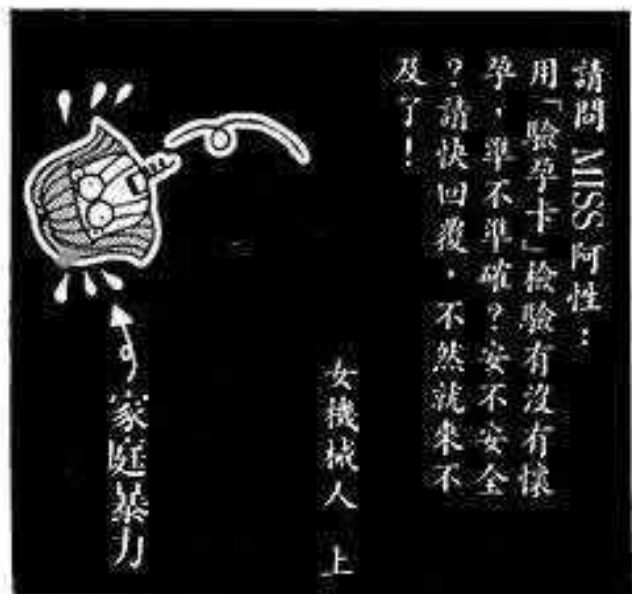 請問 MISS阿性：
用「驗孕卡」檢驗有沒有懷
孕，準不準確？安不安全
？請快回覆，不然就來不
及了！
女機械人 上
家庭暴力